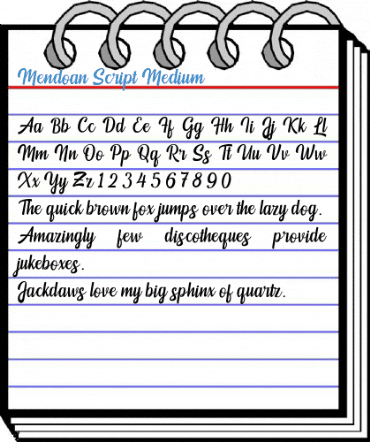 Mendoan Script Medium
Aa Bb Cc Dd Ee Ff Gg Hh Ii Jj Kk Ll
Mm Nn Oo Pp Qq Rr Ss Tt Uu Vv Ww
Xx Yy Zz 1 2 3 4 5 6 7 8 9 0
The quick brown fox jumps over the lazy dog.
Amazingly few discotheques provide
jukeboxes.
Jackdaws love my big sphinx of quartz.